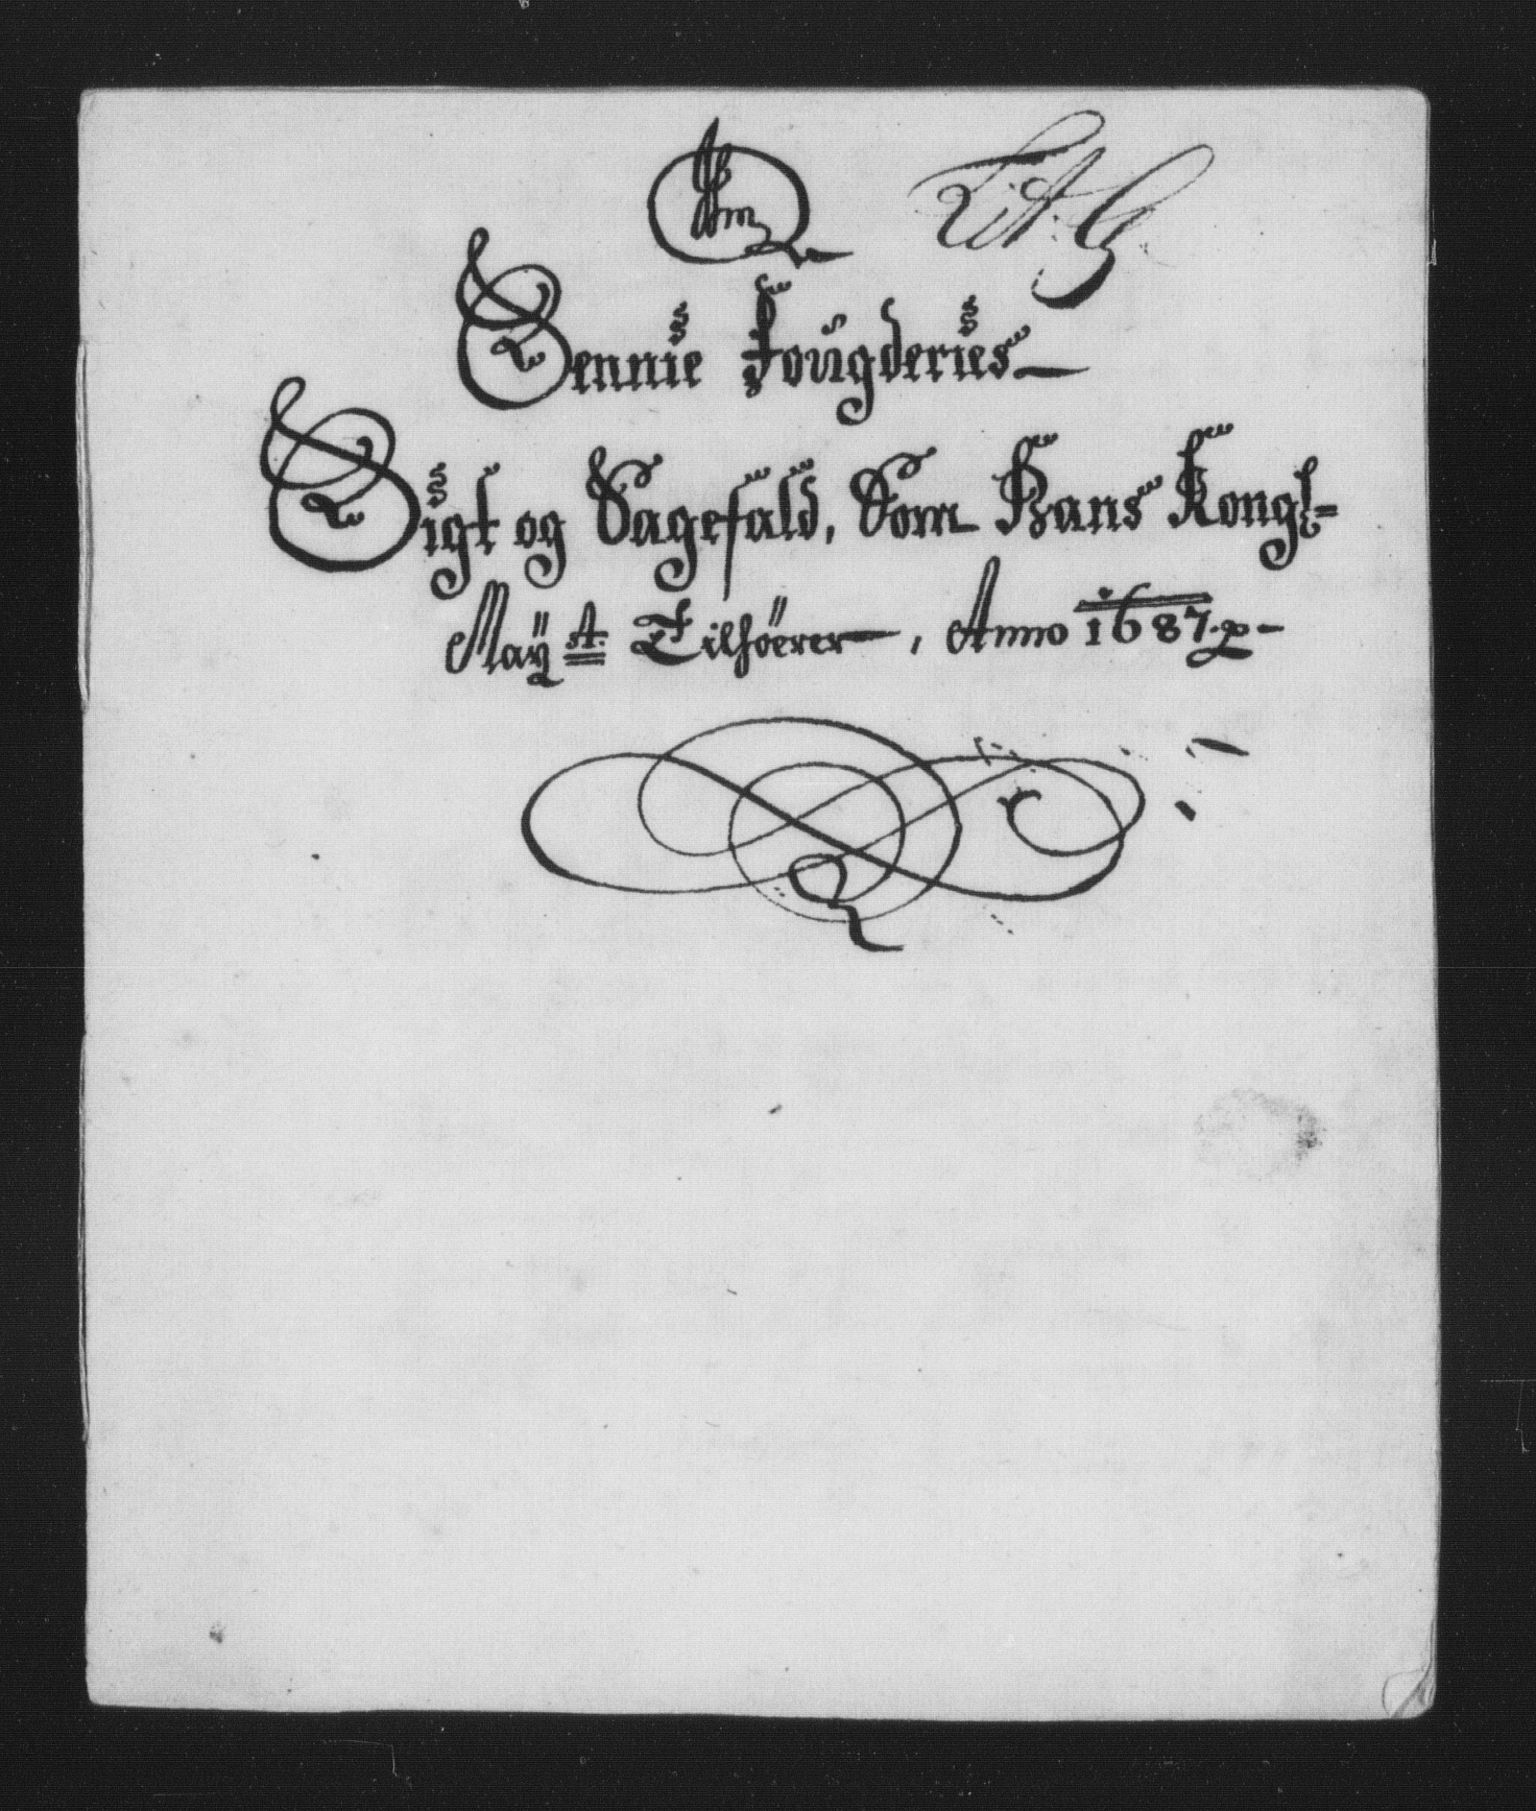 Lit. G
Sennie Foŭgderies
Sigt og Sagefald, Som Hans Kongl=
Maÿ tt. Tilhöerer, Anno 1687.